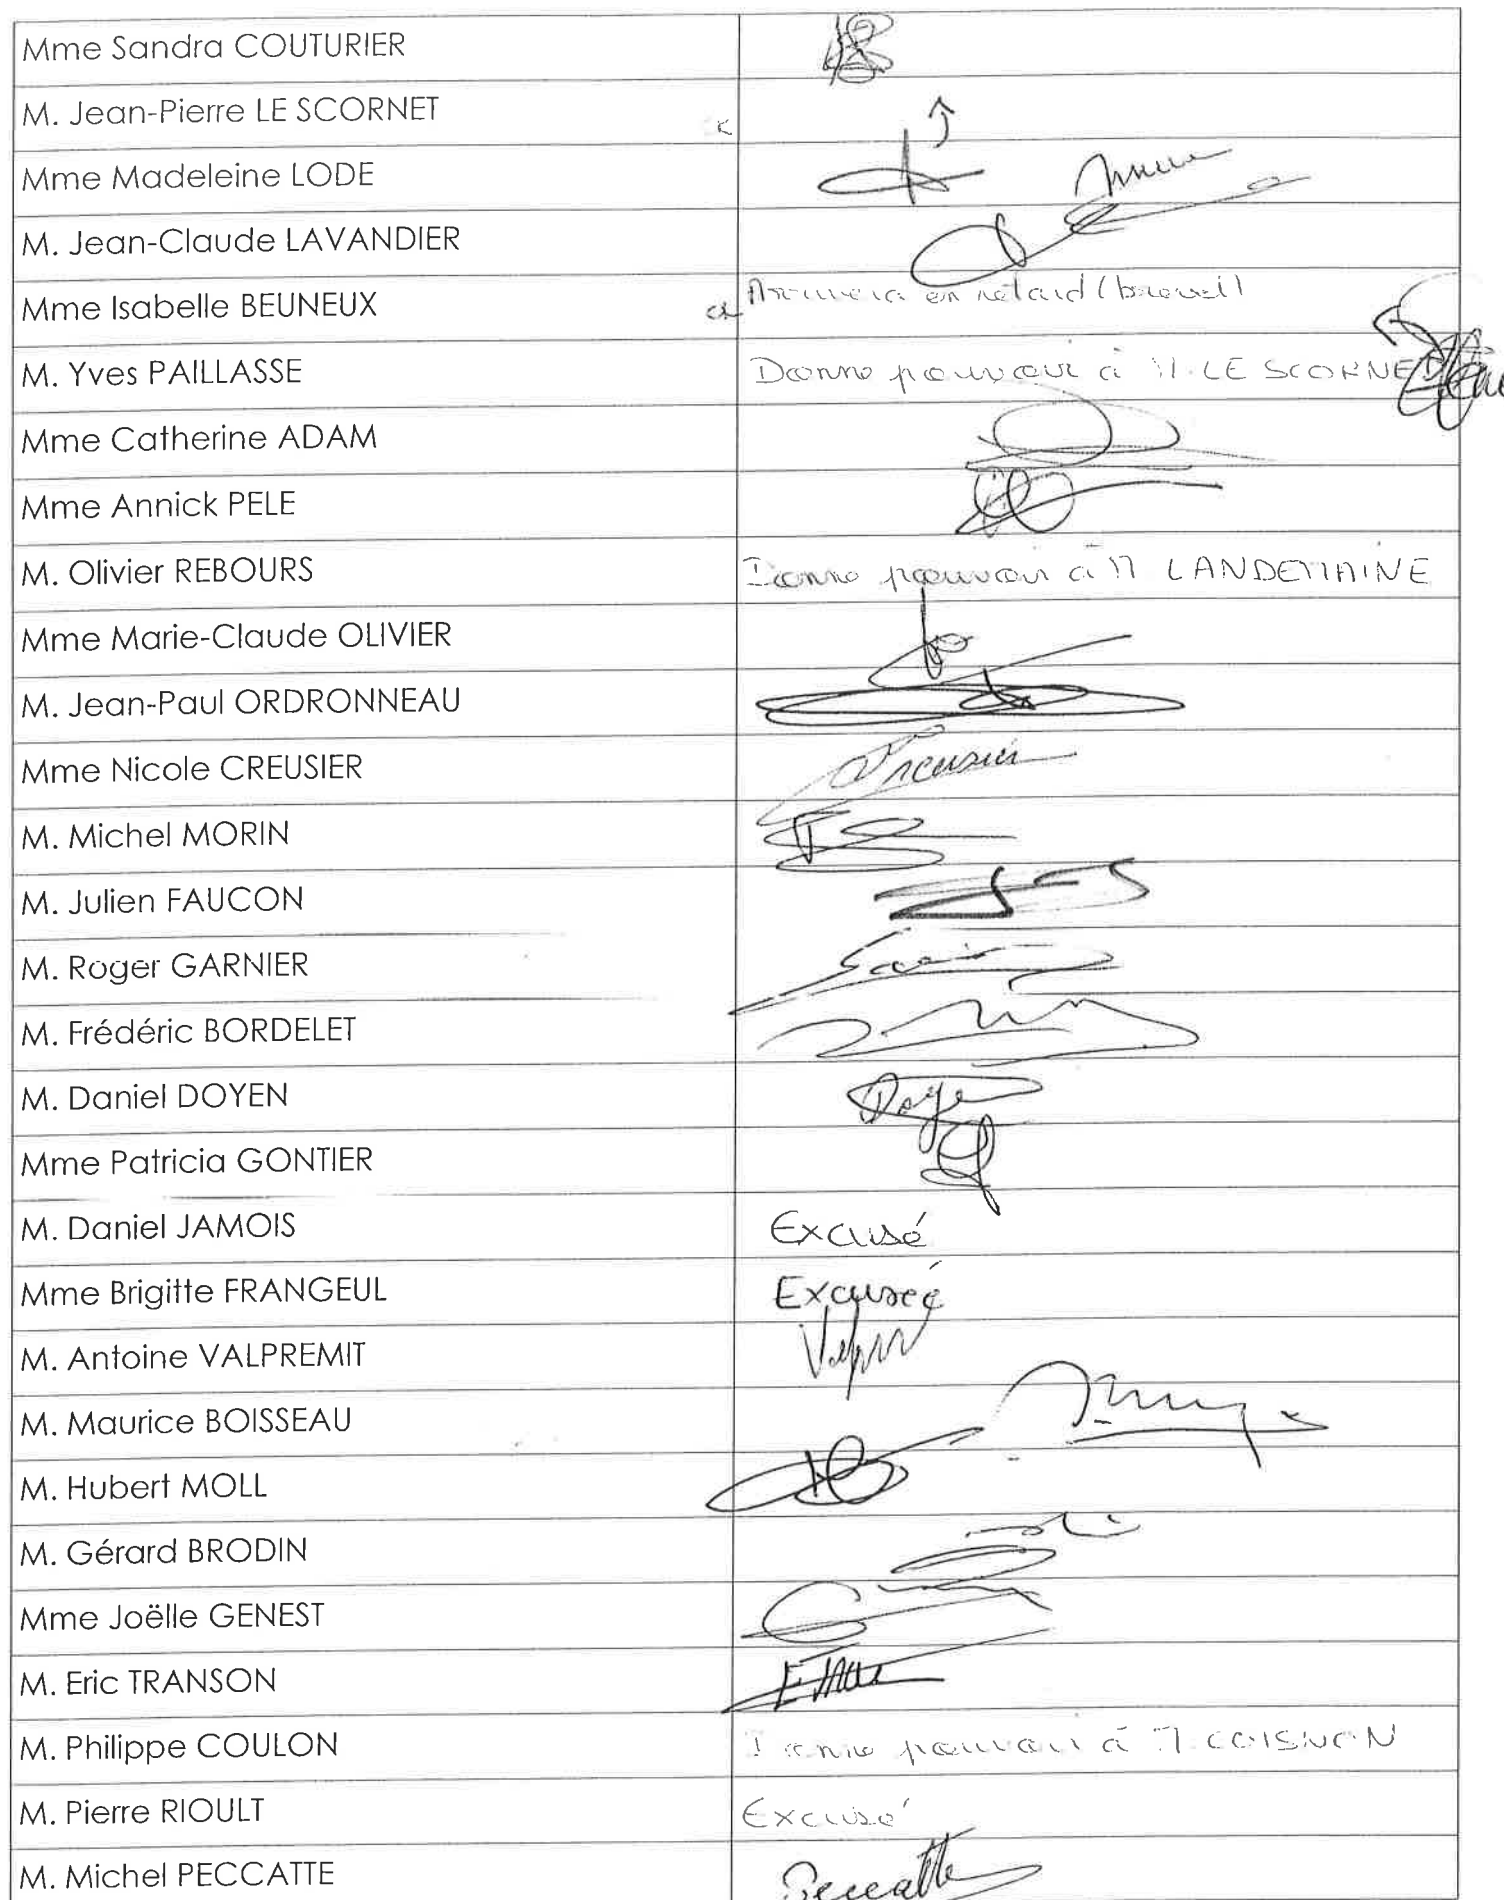 Mme Sandra COUTURIER
M. Jean-Pierre LE SCORNET
Mme Madeleine LODE
M. Jean-Claude LAVANDIER
Mme Isabelle BEUNEUX
Arrivera en retard (travail)
M. Yves PAILLASSE
Donne pouvoir à M. LE SCORNET
Mme Catherine ADAM
Mme Annick PELE
M. Olivier REBOURS
Donne pouvoir à M LANDEMAINE
Mme Marie-Claude OLIVIER
M. Jean-Paul ORDRONNEAU
Mme Nicole CREUSIER
M. Michel MORIN
M. Julien FAUCON
M. Roger GARNIER
M. Frédéric BORDELET
M. Daniel DOYEN
Mme Patricia GONTIER
M. Daniel JAMOIS
Excusé
Mme Brigitte FRANGEUL
Excusée
M. Antoine VALPREMIT
M. Maurice BOISSEAU
M. Hubert MOLL
M. Gérard BRODIN
Mme Joëlle GENEST
M. Eric TRANSON
M. Philippe COULON
Donne pouvoir à M. COISNON
M. Pierre RIOULT
Excusé
M. Michel PECCATTE
Peccatte